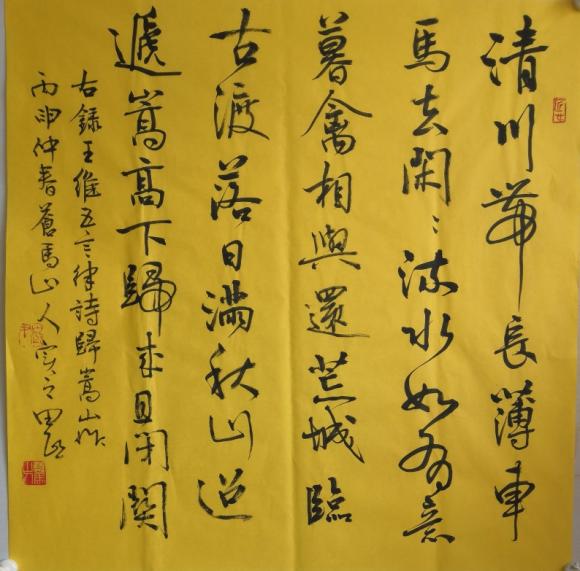 清川帶長薄車
馬去閑〻流水如有意
暮禽相與還荒城臨
古渡落日滿秋山迢
遞嵩高下歸來且閉關
右錄王維五言律詩歸嵩山作
丙申仲春蒼馬山人